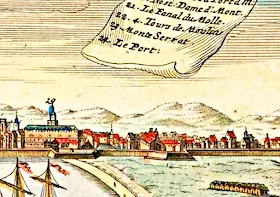 Nost. Dame d'Mont.
21. Le Fanal du Molle.
22. 4. Tours de Moulins
23 Monte Serrat
24. Le Port.